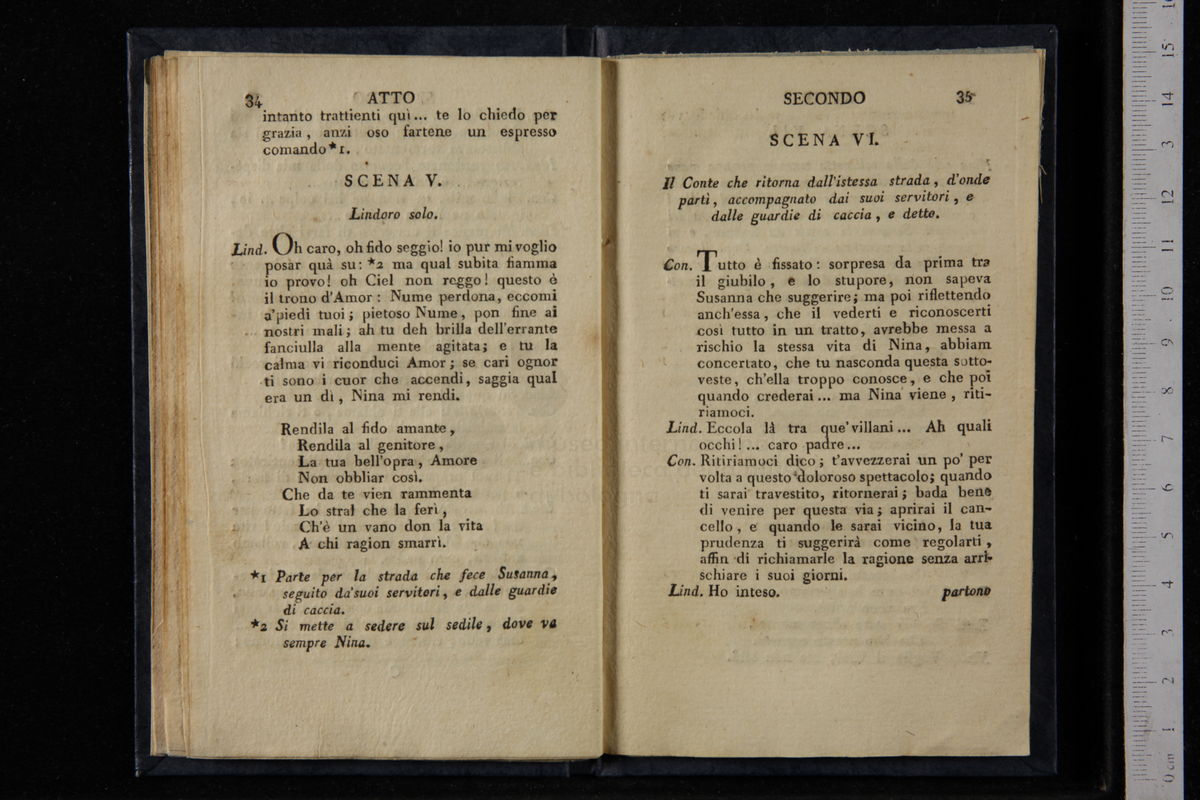 34 ATTO
intanto trattienti quì... te lo chiedo per
grazia, anzi oso fartene un espresso
comando *1.
SCENA V.
Lindoro solo.
Lind. Oh caro, oh fido seggio! io pur mi voglio
posar quà su: *2 ma qual subita fiamma
io provo! oh Ciel non reggo! questo è
il trono d'Amor: Nume perdona, eccomi
a'piedi tuoi; pietoso Nume, pon fine ai
nostri mali; ah tu deh brilla dell'errante
fanciulla alla mente agitata; e tu la
calma vi riconduci Amor; se cari ognor
ti sono i cuor che accendi, saggia qual
era un dì, Nina mi rendi.
Rendila al fido amante,
Rendila al genitore,
La tua bell'opra, Amore
Non obbliar così.
Che da te vien rammenta
Lo stral che la ferì,
Ch'è un vano don la vita
A chi ragion smarrì.
*1 Parte per la strada che fece Susanna,
seguito da'suoi servitori, e dalle guardie
di caccia.
*2 Si mette a sedere sul sedile, dove va
sempre Nina.
SECONDO 35
SCENA VI.
Il Conte che ritorna dall'istessa strada, d'onde
partì, accompagnato dai suoi servitori, e
dalle guardie di caccia, e detto.
Con. Tutto è fissato: sorpresa da prima tra
il giubilo, e lo stupore, non sapeva
Susanna che suggerire; ma poi riflettendo
anch'essa, che il vederti e riconoscerti
così tutto in un tratto, avrebbe messa a
rischio la stessa vita di Nina, abbiam
concertato, che tu nasconda questa sotto-
veste, ch'ella troppo conosce, e che poi
quando crederai... ma Nina viene, riti-
riamoci.
Lind. Eccola là tra que'villani... Ah quali
occhi!... caro padre...
Con. Ritiriamoci dico; t'avvezzerai un po' per
volta a questo doloroso spettacolo; quando
ti sarai travestito, ritornerai; bada bene
di venire per questa via; aprirai il can-
cello, e quando le sarai vicino, la tua
prudenza ti suggerirà come regolarti,
affin di richiamarle la ragione senza arri-
schiare i suoi giorni.
Lind. Ho inteso. partono
0 cm 1 2 3 4 5 6 7 8 9 10 11 12 13 14 15